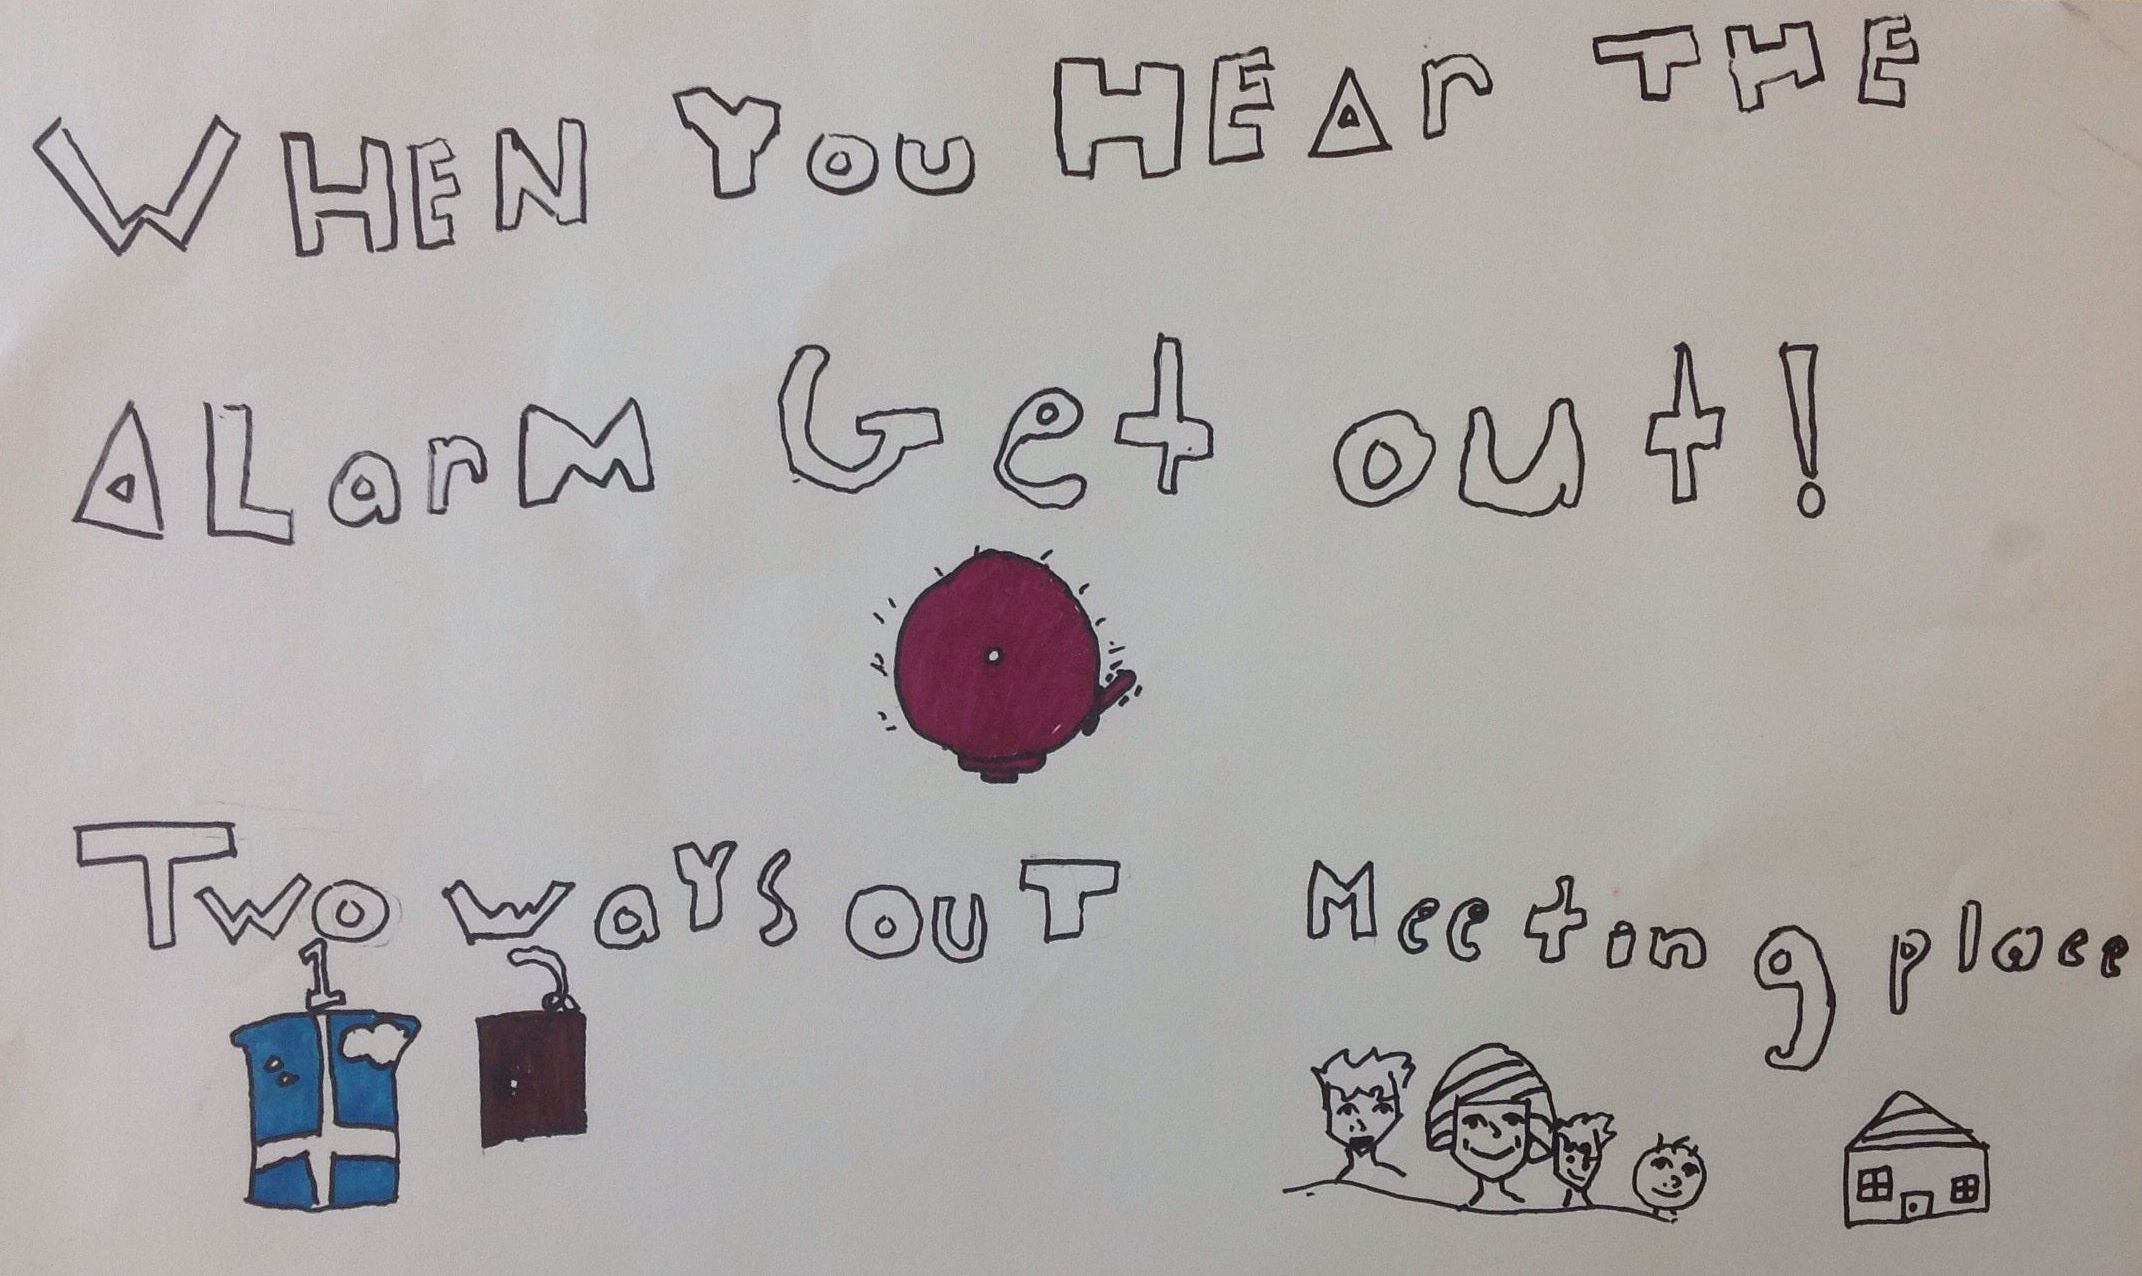 WHEN YOU HEAr THE
ALarM Get out!
Two waYs ouT
Meeting place
1 2